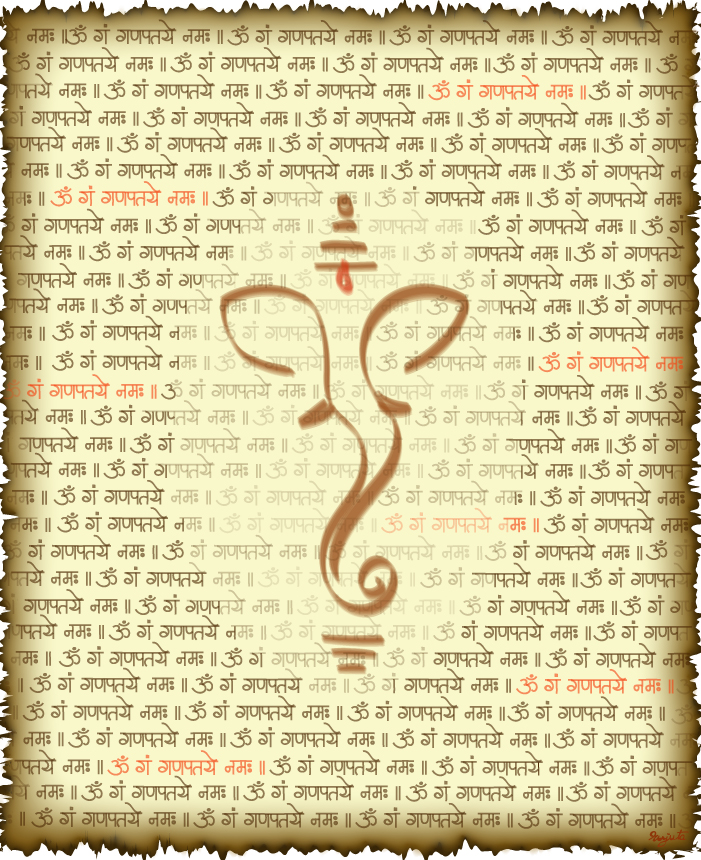 नमः ॥ ॐ गं गणपतये नमः ॥ ॐ गं गणपतये नमः ॥ ॐ गं गणपतये नमः ॥ ॐ गं गणपतये
ॐ गं गणपतये नमः ॥ ॐ गं गणपतये नमः ॥ ॐ गं गणपतये नमः ॥ ॐ गं गणपतये नमः ॥ ॐ
नमः ॥ ॐ गं गणपतये नमः ॥ ॐ गं गणपतये नमः ॥ ॐ गं गणपतये नमः ॥ ॐ गं
गं गणपतये नमः ॥ ॐ गं गणपतये नमः ॥ ॐ गं गणपतये नमः ॥ ॐ गं गणपतये नमः ॥ ॐ गं
नमः ॥ ॐ गं गणपतये नमः ॥ ॐ गं गणपतये नमः ॥ ॐ गं गणपतये नमः ॥ ॐ गं
नमः ॥ ॐ गं गणपतये नमः ॥ ॐ गं गणपतये नमः ॥ ॐ गं गणपतये नमः ॥ ॐ गं गणपतये
नमः ॥ ॐ गं गणपतये नमः ॥ ॐ गं गणपतये नमः ॥ ॐ गं गणपतये नमः ॥ ॐ गं गणपतये नमः
गं गणपतये नमः ॥ ॐ गं गणपतये नमः ॥ ॐ गं गणपतये नमः ॥ ॐ गं गणपतये नमः ॥ ॐ गं
नमः ॥ ॐ गं गणपतये नमः ॥ ॐ गं गणपतये नमः ॥ ॐ गं गणपतये नमः ॥ ॐ गं गणपतये
गणपतये नमः ॥ ॐ गं गणपतये नमः ॥ ॐ गं गणपतये नमः ॥ ॐ गं गणपतये नमः ॥ ॐ गं
नमः ॥ ॐ गं गणपतये नमः ॥ ॐ गं गणपतये नमः ॥ ॐ गं गणपतये नमः ॥ ॐ गं
नमः ॥ ॐ गं गणपतये नमः ॥ ॐ गं गणपतये नमः ॥ ॐ गं गणपतये नमः ॥ ॐ गं गणपतये नमः
नमः ॥ ॐ गं गणपतये नमः ॥ ॐ गं गणपतये नमः ॥ ॐ गं गणपतये नमः ॥ ॐ गं गणपतये नमः
गं गणपतये नमः ॥ ॐ गं गणपतये नमः ॥ ॐ गं गणपतये नमः ॥ ॐ गं गणपतये नमः ॥ ॐ गं
नमः ॥ ॐ गं गणपतये नमः ॥ ॐ गं गणपतये नमः ॥ ॐ गं गणपतये नमः ॥ ॐ गं गणपतये
गणपतये नमः ॥ ॐ गं गणपतये नमः ॥ ॐ गं गणपतये नमः ॥ ॐ गं गणपतये नमः ॥ ॐ गं
नमः ॥ ॐ गं गणपतये नमः ॥ ॐ गं गणपतये नमः ॥ ॐ गं गणपतये नमः ॥ ॐ गं
नमः ॥ ॐ गं गणपतये नमः ॥ ॐ गं गणपतये नमः ॥ ॐ गं गणपतये नमः ॥ ॐ गं गणपतये नमः
नमः ॥ ॐ गं गणपतये नमः ॥ ॐ गं गणपतये नमः ॥ ॐ गं गणपतये नमः ॥ ॐ गं गणपतये नमः
गं गणपतये नमः ॥ ॐ गं गणपतये नमः ॥ ॐ गं गणपतये नमः ॥ ॐ गं गणपतये नमः ॥ ॐ
नमः ॥ ॐ गं गणपतये नमः ॥ ॐ गं गणपतये नमः ॥ ॐ गं गणपतये नमः ॥ ॐ गं गणपतये
गणपतये नमः ॥ ॐ गं गणपतये नमः ॥ ॐ गं गणपतये नमः ॥ ॐ गं गणपतये नमः ॥ ॐ गं
नमः ॥ ॐ गं गणपतये नमः ॥ ॐ गं गणपतये नमः ॥ ॐ गं गणपतये नमः ॥ ॐ गं
नमः ॥ ॐ गं गणपतये नमः ॥ ॐ गं गणपतये नमः ॥ ॐ गं गणपतये नमः ॥ ॐ गं गणपतये नमः
॥ ॐ गं गणपतये नमः ॥ ॐ गं गणपतये नमः ॥ ॐ गं गणपतये नमः ॥ ॐ गं गणपतये नमः ॥
॥ ॐ गं गणपतये नमः ॥ ॐ गं गणपतये नमः ॥ ॐ गं गणपतये नमः ॥ ॐ गं गणपतये नमः ॥ ॐ
नमः ॥ ॐ गं गणपतये नमः ॥ ॐ गं गणपतये नमः ॥ ॐ गं गणपतये नमः ॥ ॐ गं गणपतये
नमः ॥ ॐ गं गणपतये नमः ॥ ॐ गं गणपतये नमः ॥ ॐ गं गणपतये नमः ॥ ॐ गं
नमः ॥ ॐ गं गणपतये नमः ॥ ॐ गं गणपतये नमः ॥ ॐ गं गणपतये नमः ॥ ॐ गं गणपतये
॥ ॐ गं गणपतये नमः ॥ ॐ गं गणपतये नमः ॥ ॐ गं गणपतये नमः ॥ ॐ गं गणपतये नमः ॥